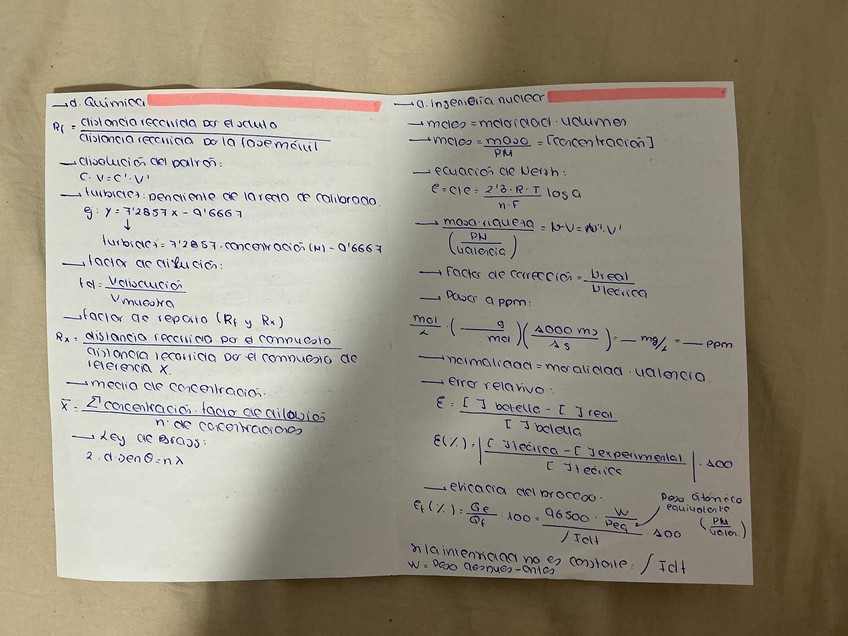 → d. Química
Rf = distancia recorrida por el soluto
distancia recorrida por la fase móvil
→ disolución del patrón:
C·V=C'·V'
→ turbidez: pendiente de la recta de calibrado.
g: y = 7'2857x - 9'6667
↓
turbidez = 7'2857·concentración (N) - 9'6667
→ factor de dilución:
fd = Vdisolución
Vmuestra
→ factor de reparto (Rf y Rx)
Rx = distancia recorrida por el compuesto
distancia recorrida por el compuesto de
referencia X.
→ media de concentración.
x̄ = Σ concentración · factor de dilución
nº de concentraciones
→ Ley de Bragg:
2·d·senθ=nλ
→ d. Ingeniería nuclear
→ moles = molaridad · volumen
→ moles = masa / PM = [concentración]
→ ecuación de Nersh:
e = cte = 2'3·R·T / n·F log a
→ masa·riqueza / (PM / valencia) = N·V = N'·V'
→ Factor de corrección = Nreal / Nteórica
→ Pasar a ppm:
mol/L · (__ g / mol) (1000 mg / 1 g) = __ mg/L = __ ppm
→ normalidad = molaridad · valencia.
→ error relativo:
E = [ ] botella - [ ] real / [ ] botella
E(%) = | [ ] teórica - [ ] experimental / [ ] teórica | · 100
→ eficacia del proceso:
Ef (%) = Qe / Qf · 100 = 96500 · W / Peq / ∫Idt · 100
Peso atómico
equivalente
(PM / valen.)
si la intensidad no es constante: ∫Idt
W = Peso después - antes